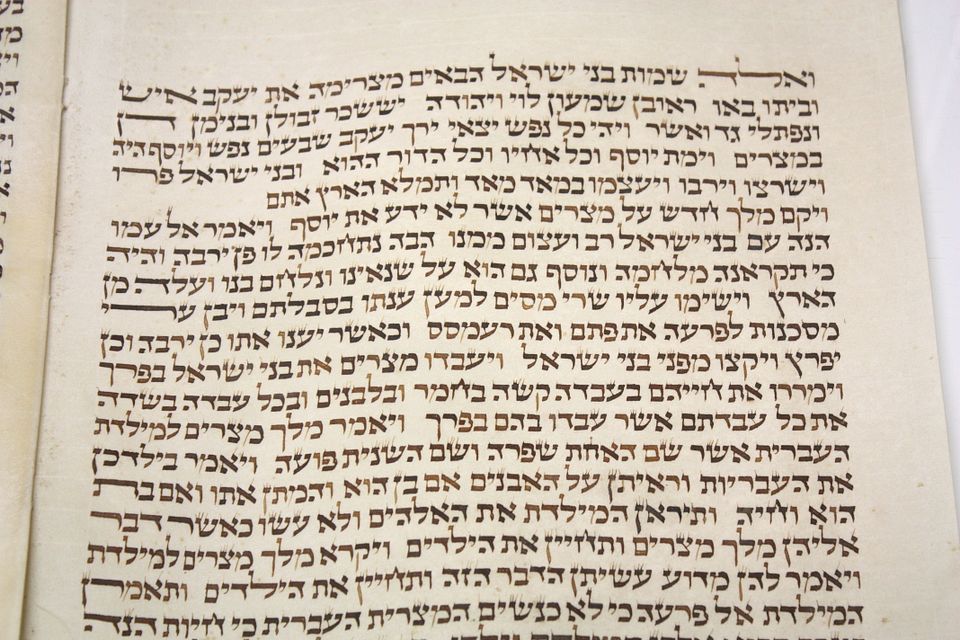 ואלה שמות בני ישראל הבאים מצרימה את יעקב איש
וביתו באו ראובן שמעון לוי ויהודה יששכר זבולן ובנימן דן
ונפתלי גד ואשר ויהי כל נפש יצאי ירך יעקב שבעים נפש ויוסף היה
במצרים וימת יוסף וכל אחיו וכל הדור ההוא ובני ישראל פרו
וישרצו וירבו ויעצמו במאד מאד ותמלא הארץ אתם
ויקם מלך חדש על מצרים אשר לא ידע את יוסף ויאמר אל עמו
הנה עם בני ישראל רב ועצום ממנו הבה נתחכמה לו פן ירבה והיה
כי תקראנה מלחמה ונוסף גם הוא על שנאינו ונלחם בנו ועלה מן
הארץ וישימו עליו שרי מסים למען ענתו בסבלתם ויבן ערי
מסכנות לפרעה את פתם ואת רעמסס וכאשר יענו אתו כן ירבה וכן
יפרץ ויקצו מפני בני ישראל ויעבדו מצרים את בני ישראל בפרך
וימררו את חייהם בעבדה קשה בחמר ובלבנים ובכל עבדה בשדה
את כל עבדתם אשר עבדו בהם בפרך ויאמר מלך מצרים למילדת
העברית אשר שם האחת שפרה ושם השנית פועה ויאמר בילדכן
את העבריות וראיתן על האבנים אם בן הוא והמתן אתו ואם בת
הוא וחיה ותיראן המילדת את האלהים ולא עשו כאשר דבר
אליהן מלך מצרים ותחיין את הילדים ויקרא מלך מצרים למילדת
ויאמר להן מדוע עשיתן הדבר הזה ותחיין את הילדים ותאמרן
המילדת אל פרעה כי לא כנשים המצרית העברית כי חיות הנה